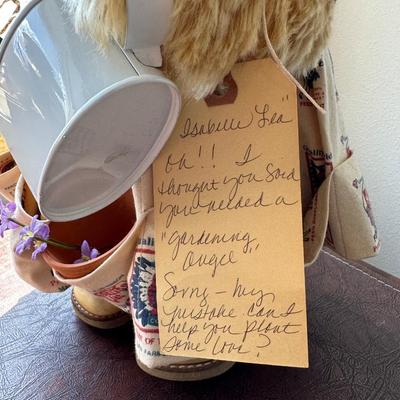 "Isabelle Lea"
Oh!! I
thought you said
you needed a
"gardening
Angel"
Sorry - my
mistake can I
help you plant
some love?